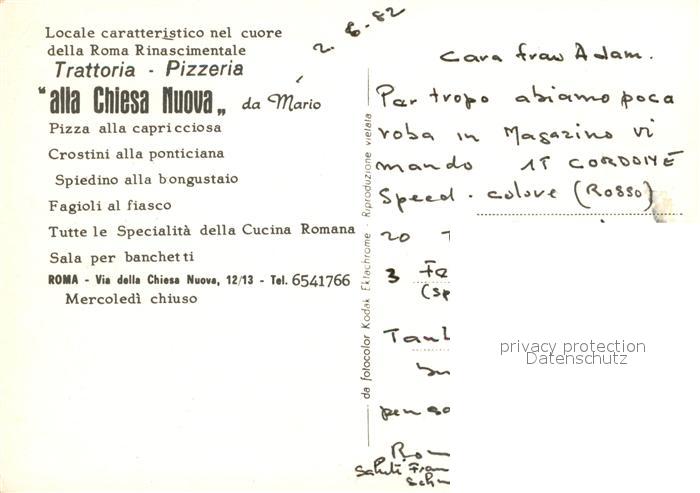 Locale caratteristico nel cuore
della Roma Rinascimentale
Trattoria - Pizzeria
"alla Chiesa Nuova„ da Mario
Pizza alla capricciosa
Crostini alla ponticiana
Spiedino alla bongustaio
Fagioli al fiasco
Tutte le Specialità della Cucina Romana
Sala per banchetti
ROMA - Via della Chiesa Nuova, 12/13 - Tel. 6541766
Mercoledì chiuso
da fotocolor Kodak Ektachrome - Riproduzione vietata
2. 6-82
Cara frau Adam.
Par tropo abiamo poca
roba in Magazino vi
mando 1T CORDONÉ
Speed. colore (Rosso)
20 T
3 Fa
(sp
Tan
pensa
Rom
Saluti Fran
Schm
privacy protection
Datenschutz